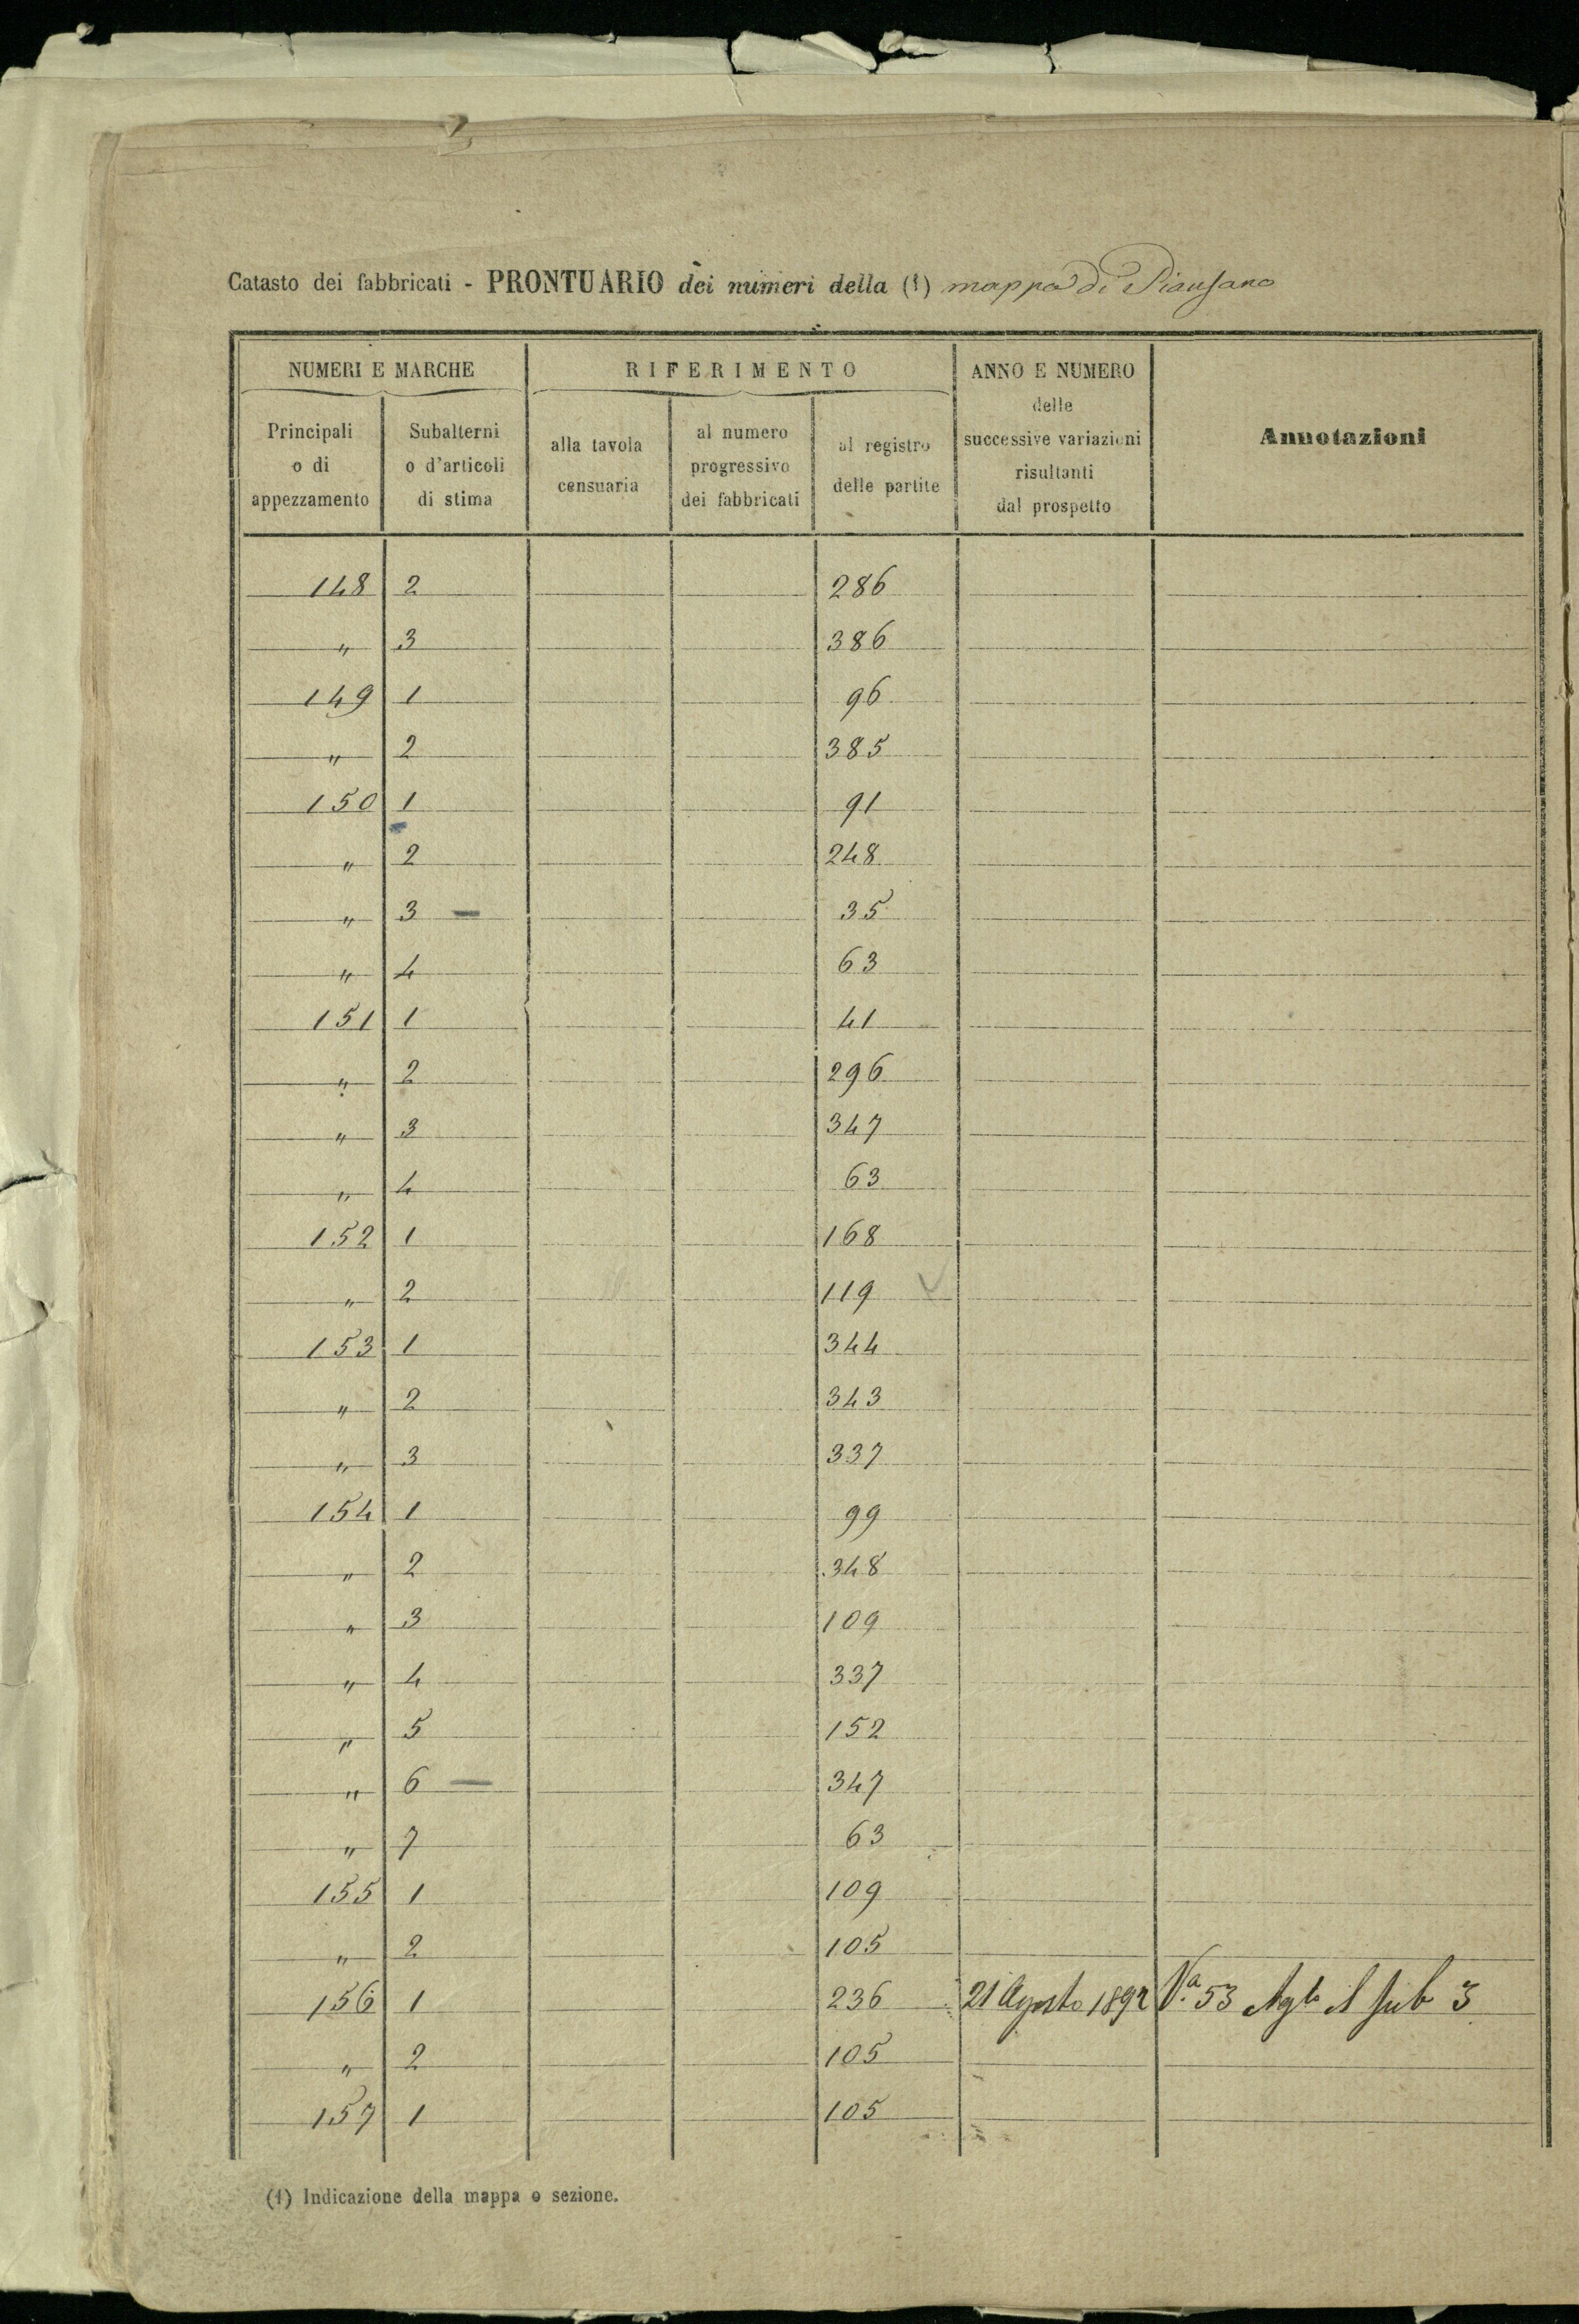 Catasto dei fabbricati - PRONTUARIO dei numeri della (1) mappa di Piansano
NUMERI E MARCHE RIFERIMENTO ANNO E NUMERO delle successive variazioni risultanti dal prospetto Annotazioni
Principali o di appezzamento Subalterni o d'articoli di stima alla tavola censuaria al numero progressivo dei fabbricati al registro delle partite
148 2 286
" 3 386
149 1 96
" 2 385
150 1 91
" 2 248
" 3 — 35
" 4 63
151 1 41
" 2 296
" 3 347
" 4 63
152 1 168
" 2 119
153 1 344
" 2 343
" 3 337
154 1 99
" 2 348
" 3 109
" 4 337
" 5 152
" 6 — 347
" 7 63
155 1 109
" 2 105
156 1 236 21 Agosto 1892 Va. 53 sub 3
" 2 105
157 1 105
(1) Indicazione della mappa o sezione.